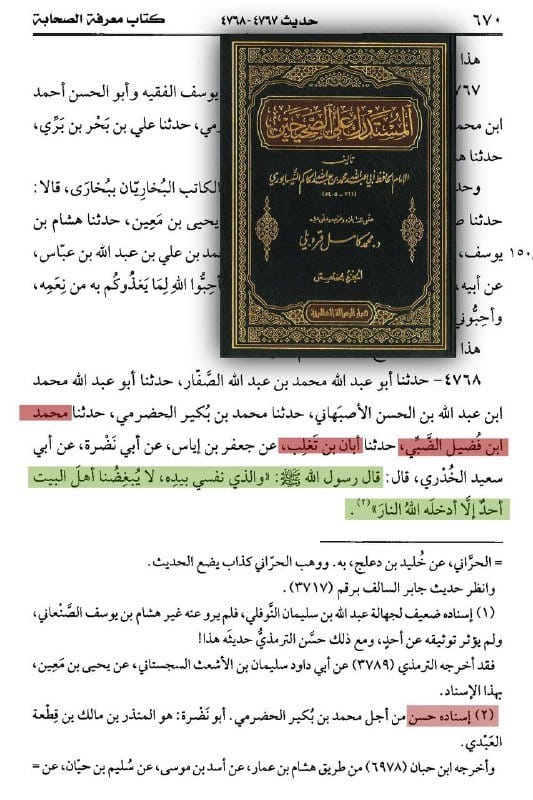 ٦٧٠
حديث ٤٧٦٧-٤٧٦٨
كتاب معرفة الصحابة
هذا
يوسف الفقيه وأبو الحسن أحمد
حدثنا علي بن بَحْر بن بَرِّي،
حدثنا
وحد
الكاتب البُخاريّان ببُخارَى، قالا:
حدثنا
يحيى بن مَعِين، حدثنا هشام بن
يوسف،
بن علي بن عبد الله بن عبّاس،
عن أبيه،
أحِبُّوا اللهَ لِمَا يَغذُوكُم به من نِعَمِه،
وأحِبُّوني
هذا
المستدرك على الصحيحين
تأليف
الإمام الحافظ أبي عبد الله محمد بن عبد الله الحاكم النيسابوري
د. محمد كامل قره بللي
الجزء الخامس
دار الرسالة العالمية
٤٧٦٨- حدثنا أبو عبد الله محمد بن عبد الله الصَّفّار، حدثنا أبو عبد الله محمد
ابن عبد الله بن الحسن الأصبَهاني، حدثنا محمد بن بُكير الحضرمي، حدثنا محمد
ابن فُضيل الضَّبِّي، حدثنا أبان بن تَغلِب، عن جعفر بن إياس، عن أبي نَضْرة، عن أبي
سعيد الخُدْري، قال: قال رسول الله ﷺ: «والذي نفسي بيدِه، لا يُبغِضُنا أهلَ البيت
أحدٌ إلَّا أدخلَه اللهُ النارَ»(٢).
= الحرَّاني، عن خُليد بن دعلج، به. ووهب الحرّاني كذاب يضع الحديث.
وانظر حديث جابر السالف برقم (٣٧١٧).
(١) إسناده ضعيف لجهالة عبد الله بن سليمان النَّوفلي، فلم يرو عنه غير هشام بن يوسف الصَّنْعاني،
ولم يؤثر توثيقه عن أحدٍ، ومع ذلك حسَّن الترمذيُّ حديثَه هذا!
فقد أخرجه الترمذي (٣٧٨٩) عن أبي داود سليمان بن الأشعث السجستاني، عن يحيى بن مَعِين،
بهذا الإسناد.
(٢) إسناده حسن من أجل محمد بن بُكير الحضرمي. أبو نَضْرة: هو المنذر بن مالك بن قِطْعة
العَبْدي.
وأخرجه ابن حبان (٦٩٧٨) من طريق هشام بن عمار، عن أسد بن موسى، عن سُليم بن حيّان، عن =